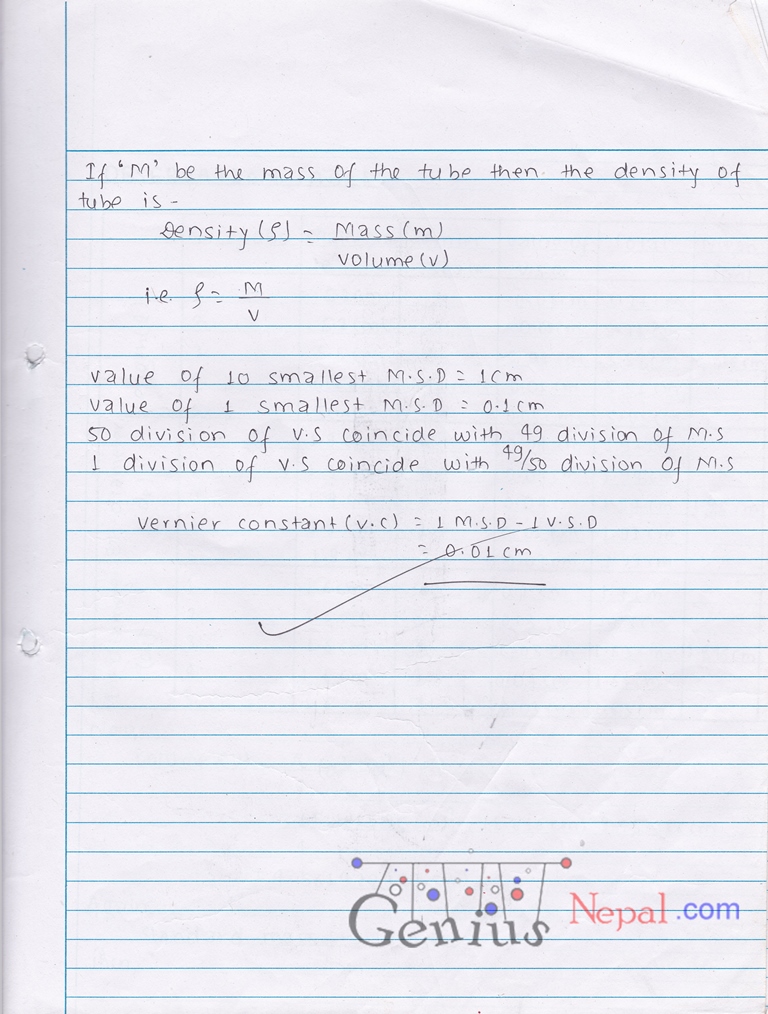 If 'M' be the mass of the tube then the density of
tube is -
Density (ρ) = Mass (m)
Volume (v)
i.e. ρ = M
V
value of 10 smallest M.S.D = 1cm
value of 1 smallest M.S.D = 0.1cm
50 division of V.S coincide with 49 division of M.S
1 division of V.S coincide with 49/50 division of M.S
Vernier constant (V.C) = 1 M.S.D - 1 V.S.D
= 0.01 cm
Genius Nepal.com